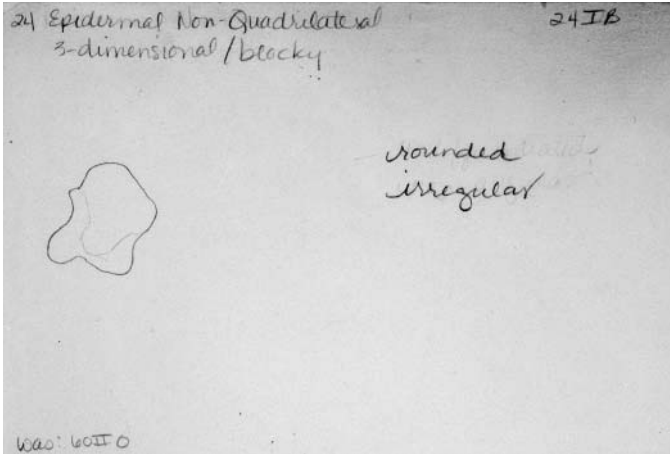 24 Epidermal Non-Quadrilateral
24IB
3-dimensional/blocky
rounded
irregular
was: 60II0